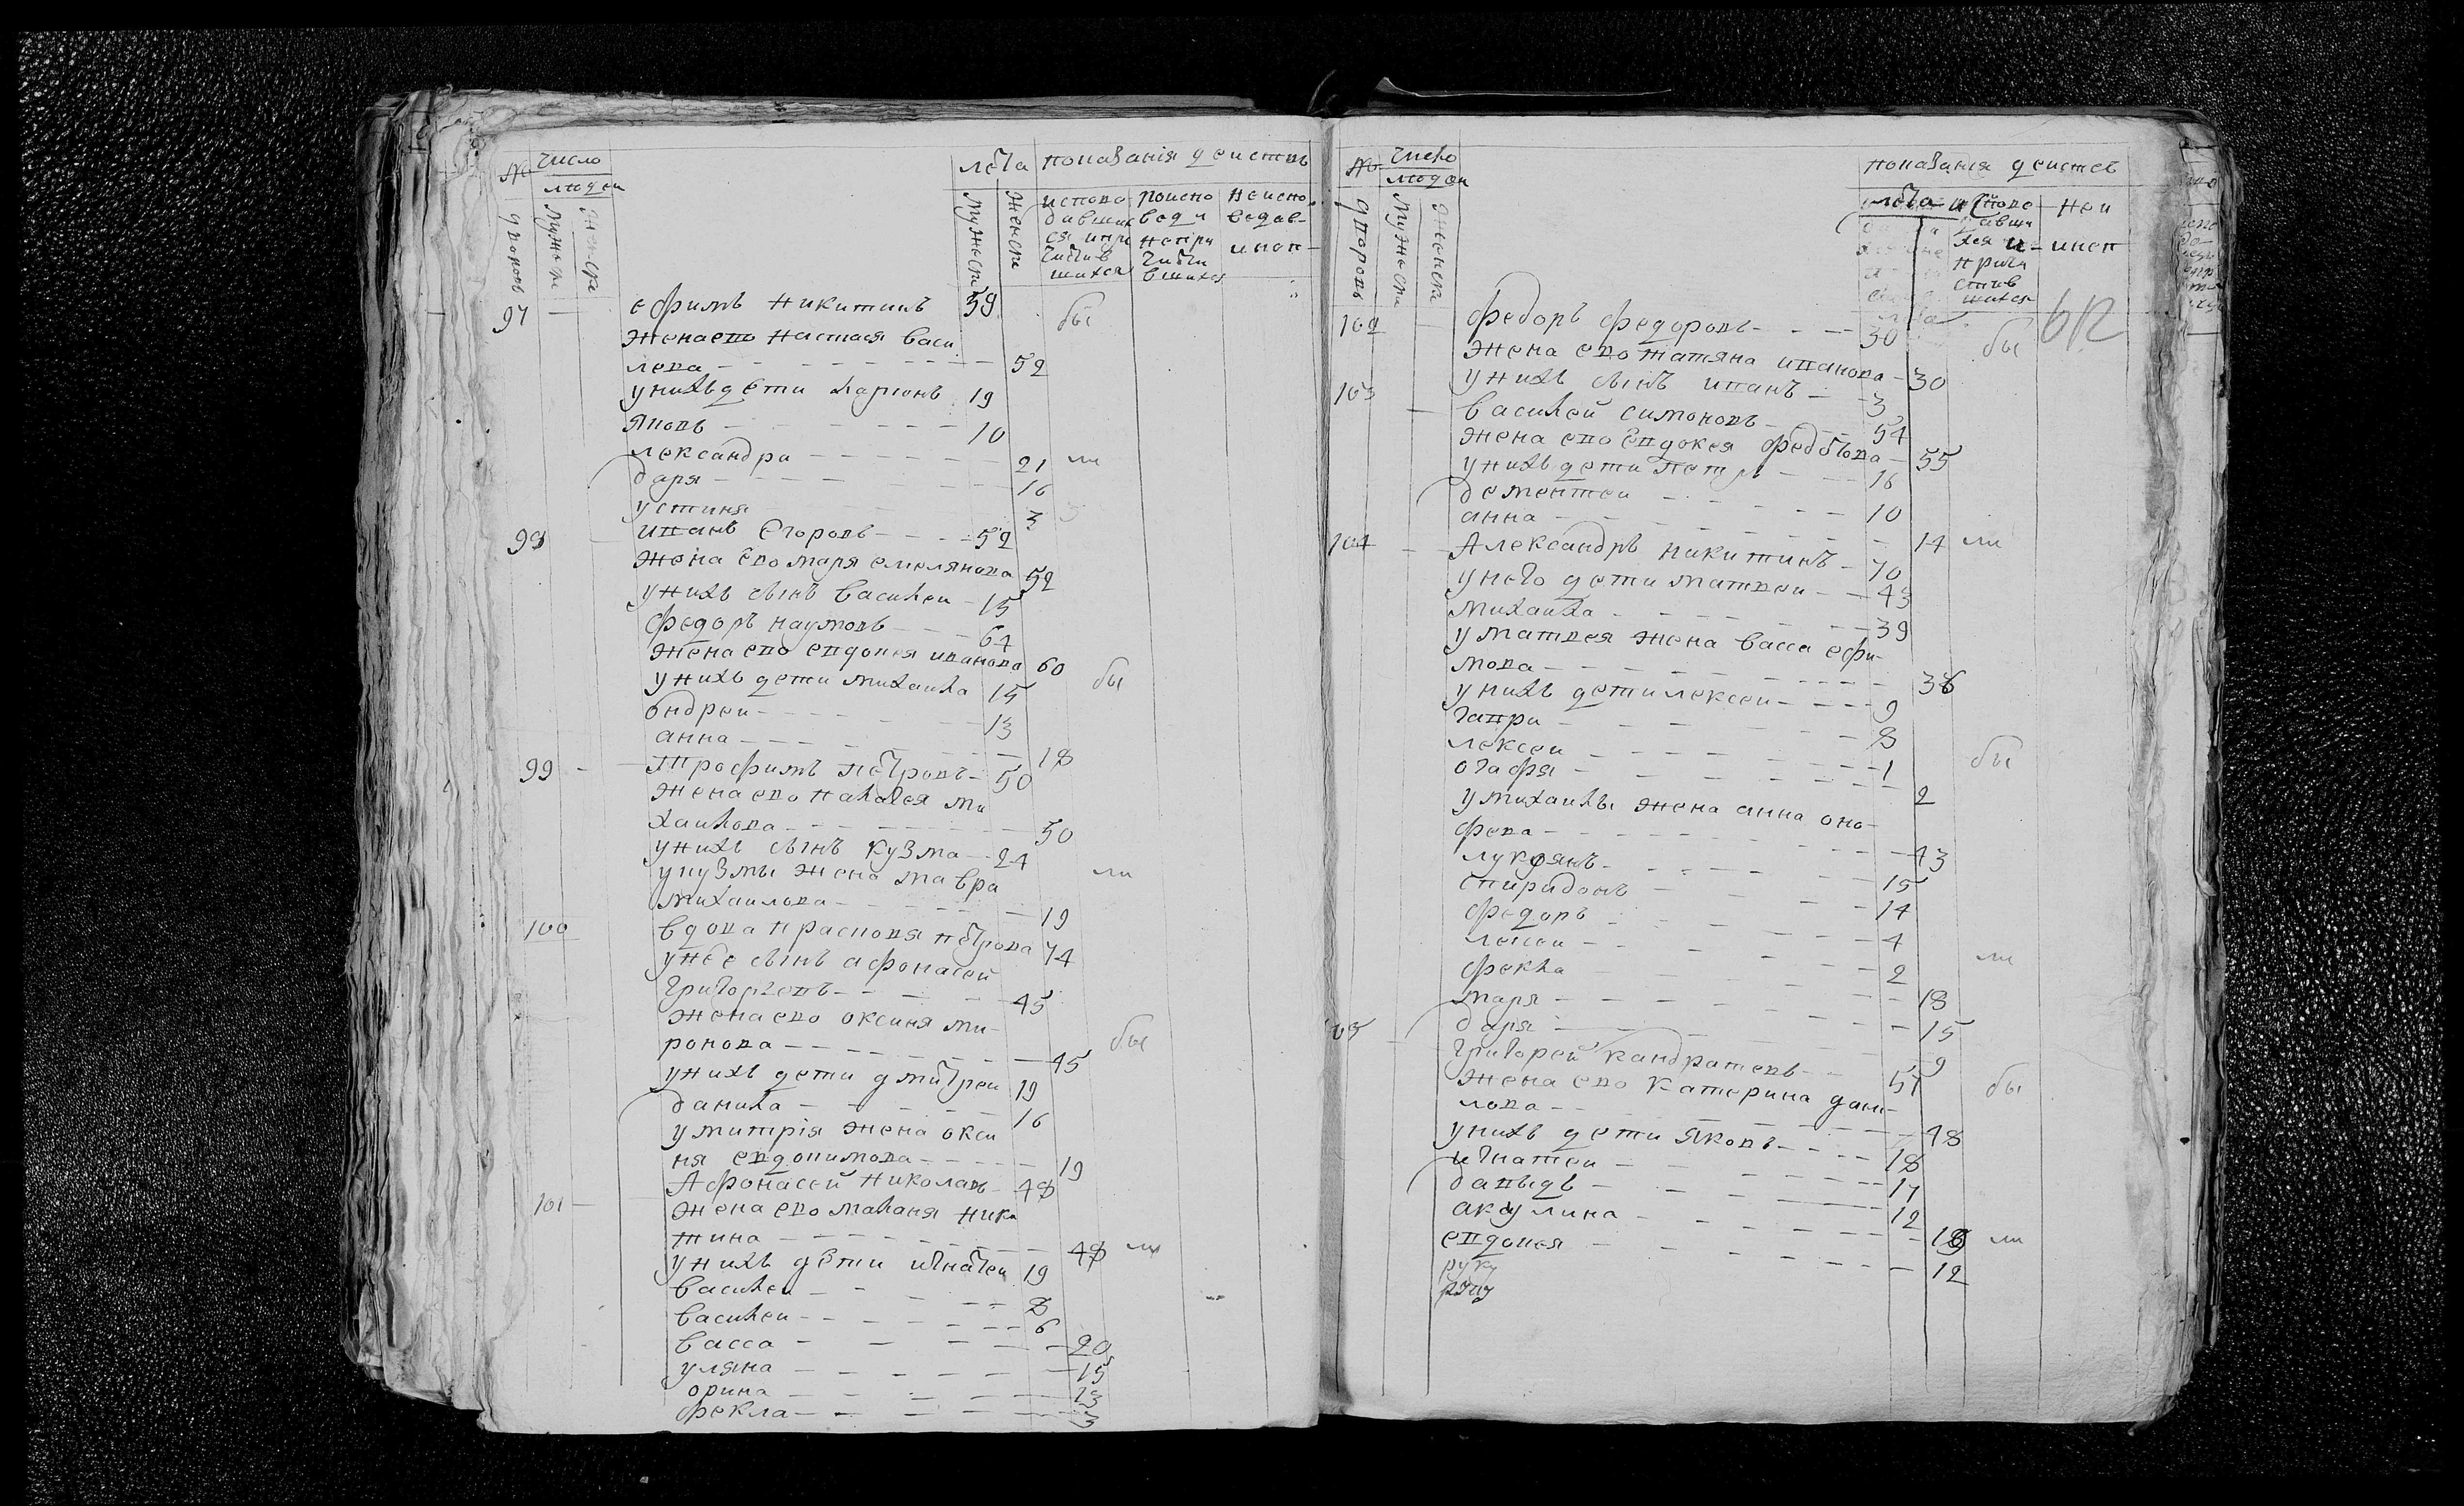 № число людей лета показания действъ
дворовъ мужеска женска мужеска женска
исповедавшихся и причастившихся
по исповеди не причастившихся
не исповедав
97 ефимъ никитинъ 59 бы
жена ево настася васи
лева 52
у нихъ дети ларионъ 19
яковъ 10
лександра 21 ли
даря 16
устиня 3
98 иванъ егоровъ 52
жена ево маря емелянова 52
у нихъ сынъ василеи 15
федоръ наумовъ 64
жена ево евдокея иванова 60 бы
у нихъ дети михаила 15
ондреи 13
анна 18
99 трофимъ петровъ 50
жена ево наталея ми
хаилова 50
у нихъ сынъ кузма 24
у кузмы жена мавра ли
михаилова 19
100 вдова прасковя петрова 74
у нее сынъ афонасей
григоревъ 45
жена ево оксиня ми-
ронова 45 бы
у нихъ дети дмитреи 19
данила 16
у митрія жена окси
ня евдокимова 19
101 Афонасей николаевъ 48
жена ево маланя ники
тина 48 ли
у нихъ дети игнатеи 19
василеи 8
василеи 6
васса 20
уляна 15
орина 13
фекла 3
№ число людей показания действъ
дворовъ мужеска женска лета
исповедавшихся и причастившихся
612
102 федоръ федоровъ 30 бы
жена ево татяна иванова 30
у нихъ сынъ иванъ 3
103 василей симоновъ 54
жена ево евдокея федотова 55
у нихъ дети петръ 16
дементеи 10
анна 14 ли
104 Александръ никитинъ 70
у него дети матвеи 43
михаила 39
у матвея жена васса ефи-
мова 36
у нихъ дети лексеи 9
гаври 8
лексеи 1 бы
огафя 2
у михаилы жена анна оно-
фева 43
лукоянъ 15
спиридонъ 14
федоръ 4
2 ли
фекла 18
маря 15
даря 9
105 григорей кандратевъ 51
жена ево катерина дани- бы
лова 48
у нихъ дети яковъ 18
игнатеи 17
давыдъ 12
акулина 18 ли
евдокея 12
руку